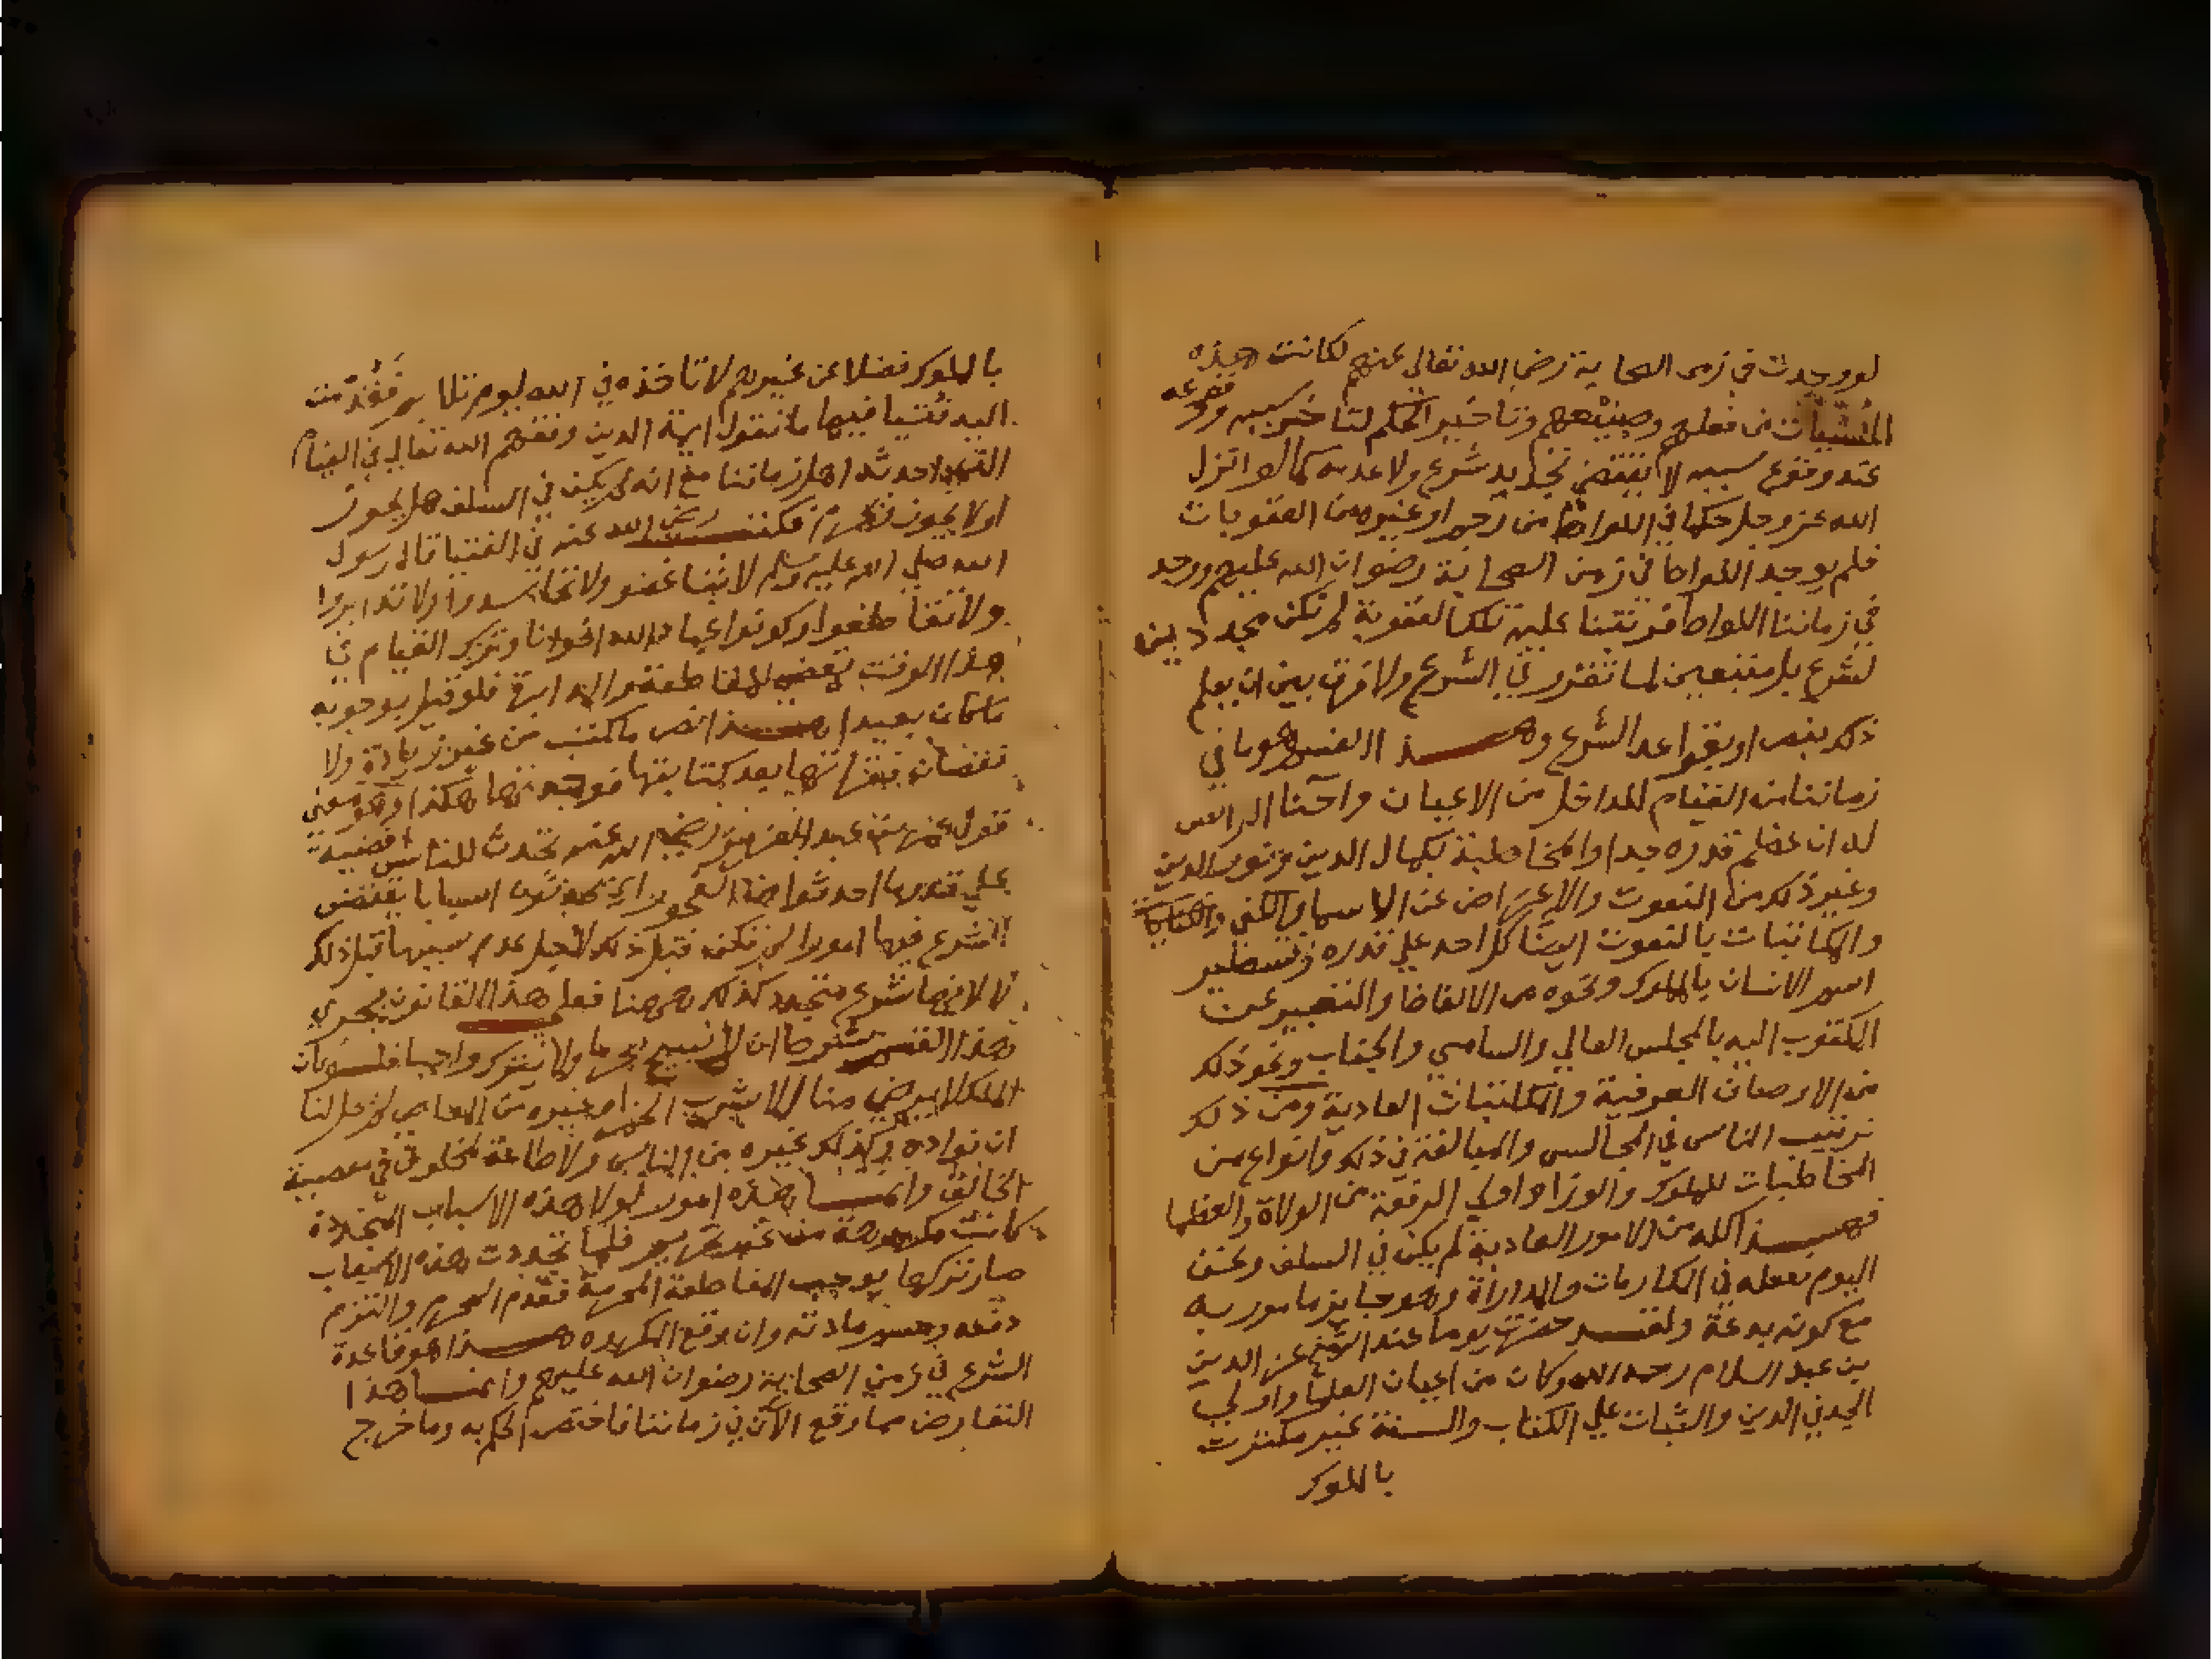 لو وجدت في زمن الصحابة رضي الله تعالى عنهم لكانت هذه
المسببات من فعلهم وصنيعهم وتاخير الحكم لتاخر سببه ووقوعه
عند وقوع سببه لا يقتضي تجديد شرع ولا عدمه كما لو انزل
الله عز وجل حكما في اللواط من رجم او غيره من العقوبات
فلم يوجد اللواط في زمن الصحابة رضوان الله عليهم ووجد
في زماننا اللواط فرتبنا عليه تلك العقوبة لم نكن مجددين
لشرع بل متبعين لما تقرر في الشرع ولا فرق بين ان يعلم
ذلك بنص او بقواعد الشرع وهذا القسم هو ما في
زماننا من القيام للداخل من الاعيان واحنا الراس
له ان عظم قدره جدا والمخاطبة بكمال الدين ونور الدين
وغير ذلك من النعوت والاعراض عن الاسما والكنى
والمكاتبات بالنعوت ايضا كل احد على قدره وتسطير
اسم الانسان بالمملوك ونحوه من الالفاظ والتعبير عن
المكتوب اليه بالمجلس العالي والسامي والجناب ونحو ذلك
من الاوصاف العرفية والمكاتبات العادية ومن ذلك
ترتيب الناس في المجالس والمبالغة في ذلك وانواع من
المخاطبات للملوك والوزرا واولي الرفعة من الولاة والعظما
فهذا كله من الامور العادية لم يكن في السلف ونحن
اليوم نفعله في المكارمات والمداراة وهو جايز مامور به
مع كونه بدعة ولقد حضرت يوما عند الشيخ عز الدين
بن عبد السلام رحمه الله وكان من اعيان العلما واولي
الجد في الدين والثبات على الكتاب والسنة غير مكترث
بالملوك
بالملوك فضلا عن غيرهم لا تاخذه في الله لومة لايم فقدمت
اليه فتيا فيها ما تقول ايمة الدين وفقهم الله تعالى في القيام
الذي احدثه اهل زماننا مع انه لم يكن في السلف هل يجوز
او لا يجوز فكتب رضي الله عنه في الفتيا قال رسول
الله صلى الله عليه وسلم لا تباغضوا ولا تحاسدوا ولا تدابروا
ولا تقاطعوا وكونوا عباد الله اخوانا وترك القيام في
هذا الوقت يفضي للمقاطعة والمدابرة فلو قيل بوجوبه
ما كان بعيدا هذا نص ما كتب من غير زيادة ولا
نقصان فقراتها بعد كتابتها فوجدتها هكذا وهو معنى
قول عمر بن عبد العزيز رضي الله عنه تحدث للناس اقضية
على قدر ما احدثوا من الفجور اي يحدثون اسبابا يقتضي
الشرع فيها امورا لم تكن قبل ذلك لاجل عدم سببها قبل ذلك
لا لانها شرع متجدد كذلك ههنا فعلى هذا القانون يجري
هذا القسم بشرط ان لا نبيح محرما ولا نترك واجبا فلو كان
الملك لا يرضى منا الا شرب الخمر او غيره من المعاصي لم يحل لنا
ان نواده وكذلك غيره من الناس ولا طاعة لمخلوق في معصية
الخالق وانما هذه امور لولا هذه الاسباب المتجددة
كانت مكروهة من غير تحريم فلما تجددت هذه الاسباب
صار تركها يوجب المقاطعة المحرمة فقدم المحرم والتزم
دفعه وحسم مادته وان وقع المكروه هذا هو قاعدة
الشرع في زمن الصحابة رضوان الله عليهم وانما هذا
التعارض مما وقع الآن في زماننا فاختص الحكم به وما خرج